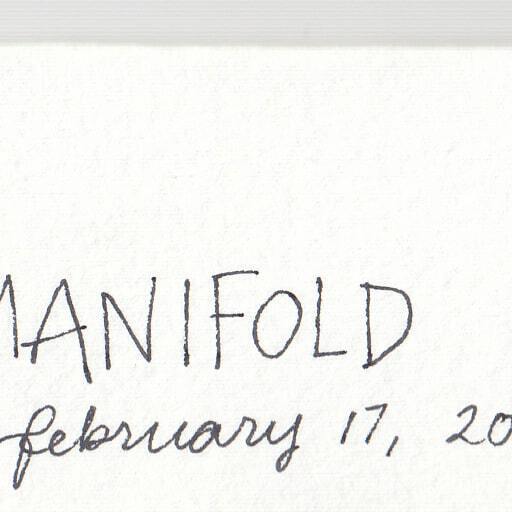 MANIFOLD
february 17, 20